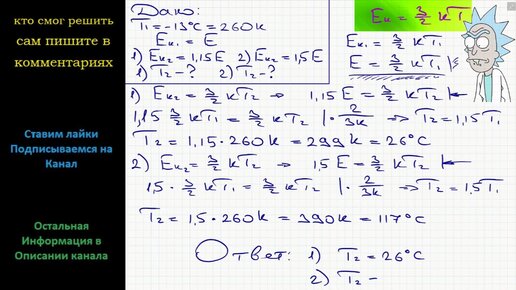 кто смог решить
сам пишите в
комментариях
Ставим лайки
Подписываемся на
Канал
Остальная
Информация в
Описании канала
Дано:
T₁ = -13°C = 260K
Eк₁ = E
1) Eк₂ = 1,15E 2) Eк₂ = 1,5E
1) T₂ - ? 2) T₂ - ?
Eк = 3/2 кT
Eк₁ = 3/2 кT₁
E = 3/2 кT₁
1) Eк₂ = 3/2 кT₂ → 1,15E = 3/2 кT₂
1,15 3/2 кT₁ = 3/2 кT₂ | · 2/3к ⇒ T₂ = 1,15T₁
T₂ = 1,15 · 260K = 299K = 26°C
2) Eк₂ = 3/2 кT₂ → 1,5E = 3/2 кT₂
1,5 · 3/2 кT₁ = 3/2 кT₂ | · 2/3к ⇒ T₂ = 1,5T₁
T₂ = 1,5 · 260K = 390K = 117°C
Ответ: 1) T₂ = 26°C
2) T₂ -